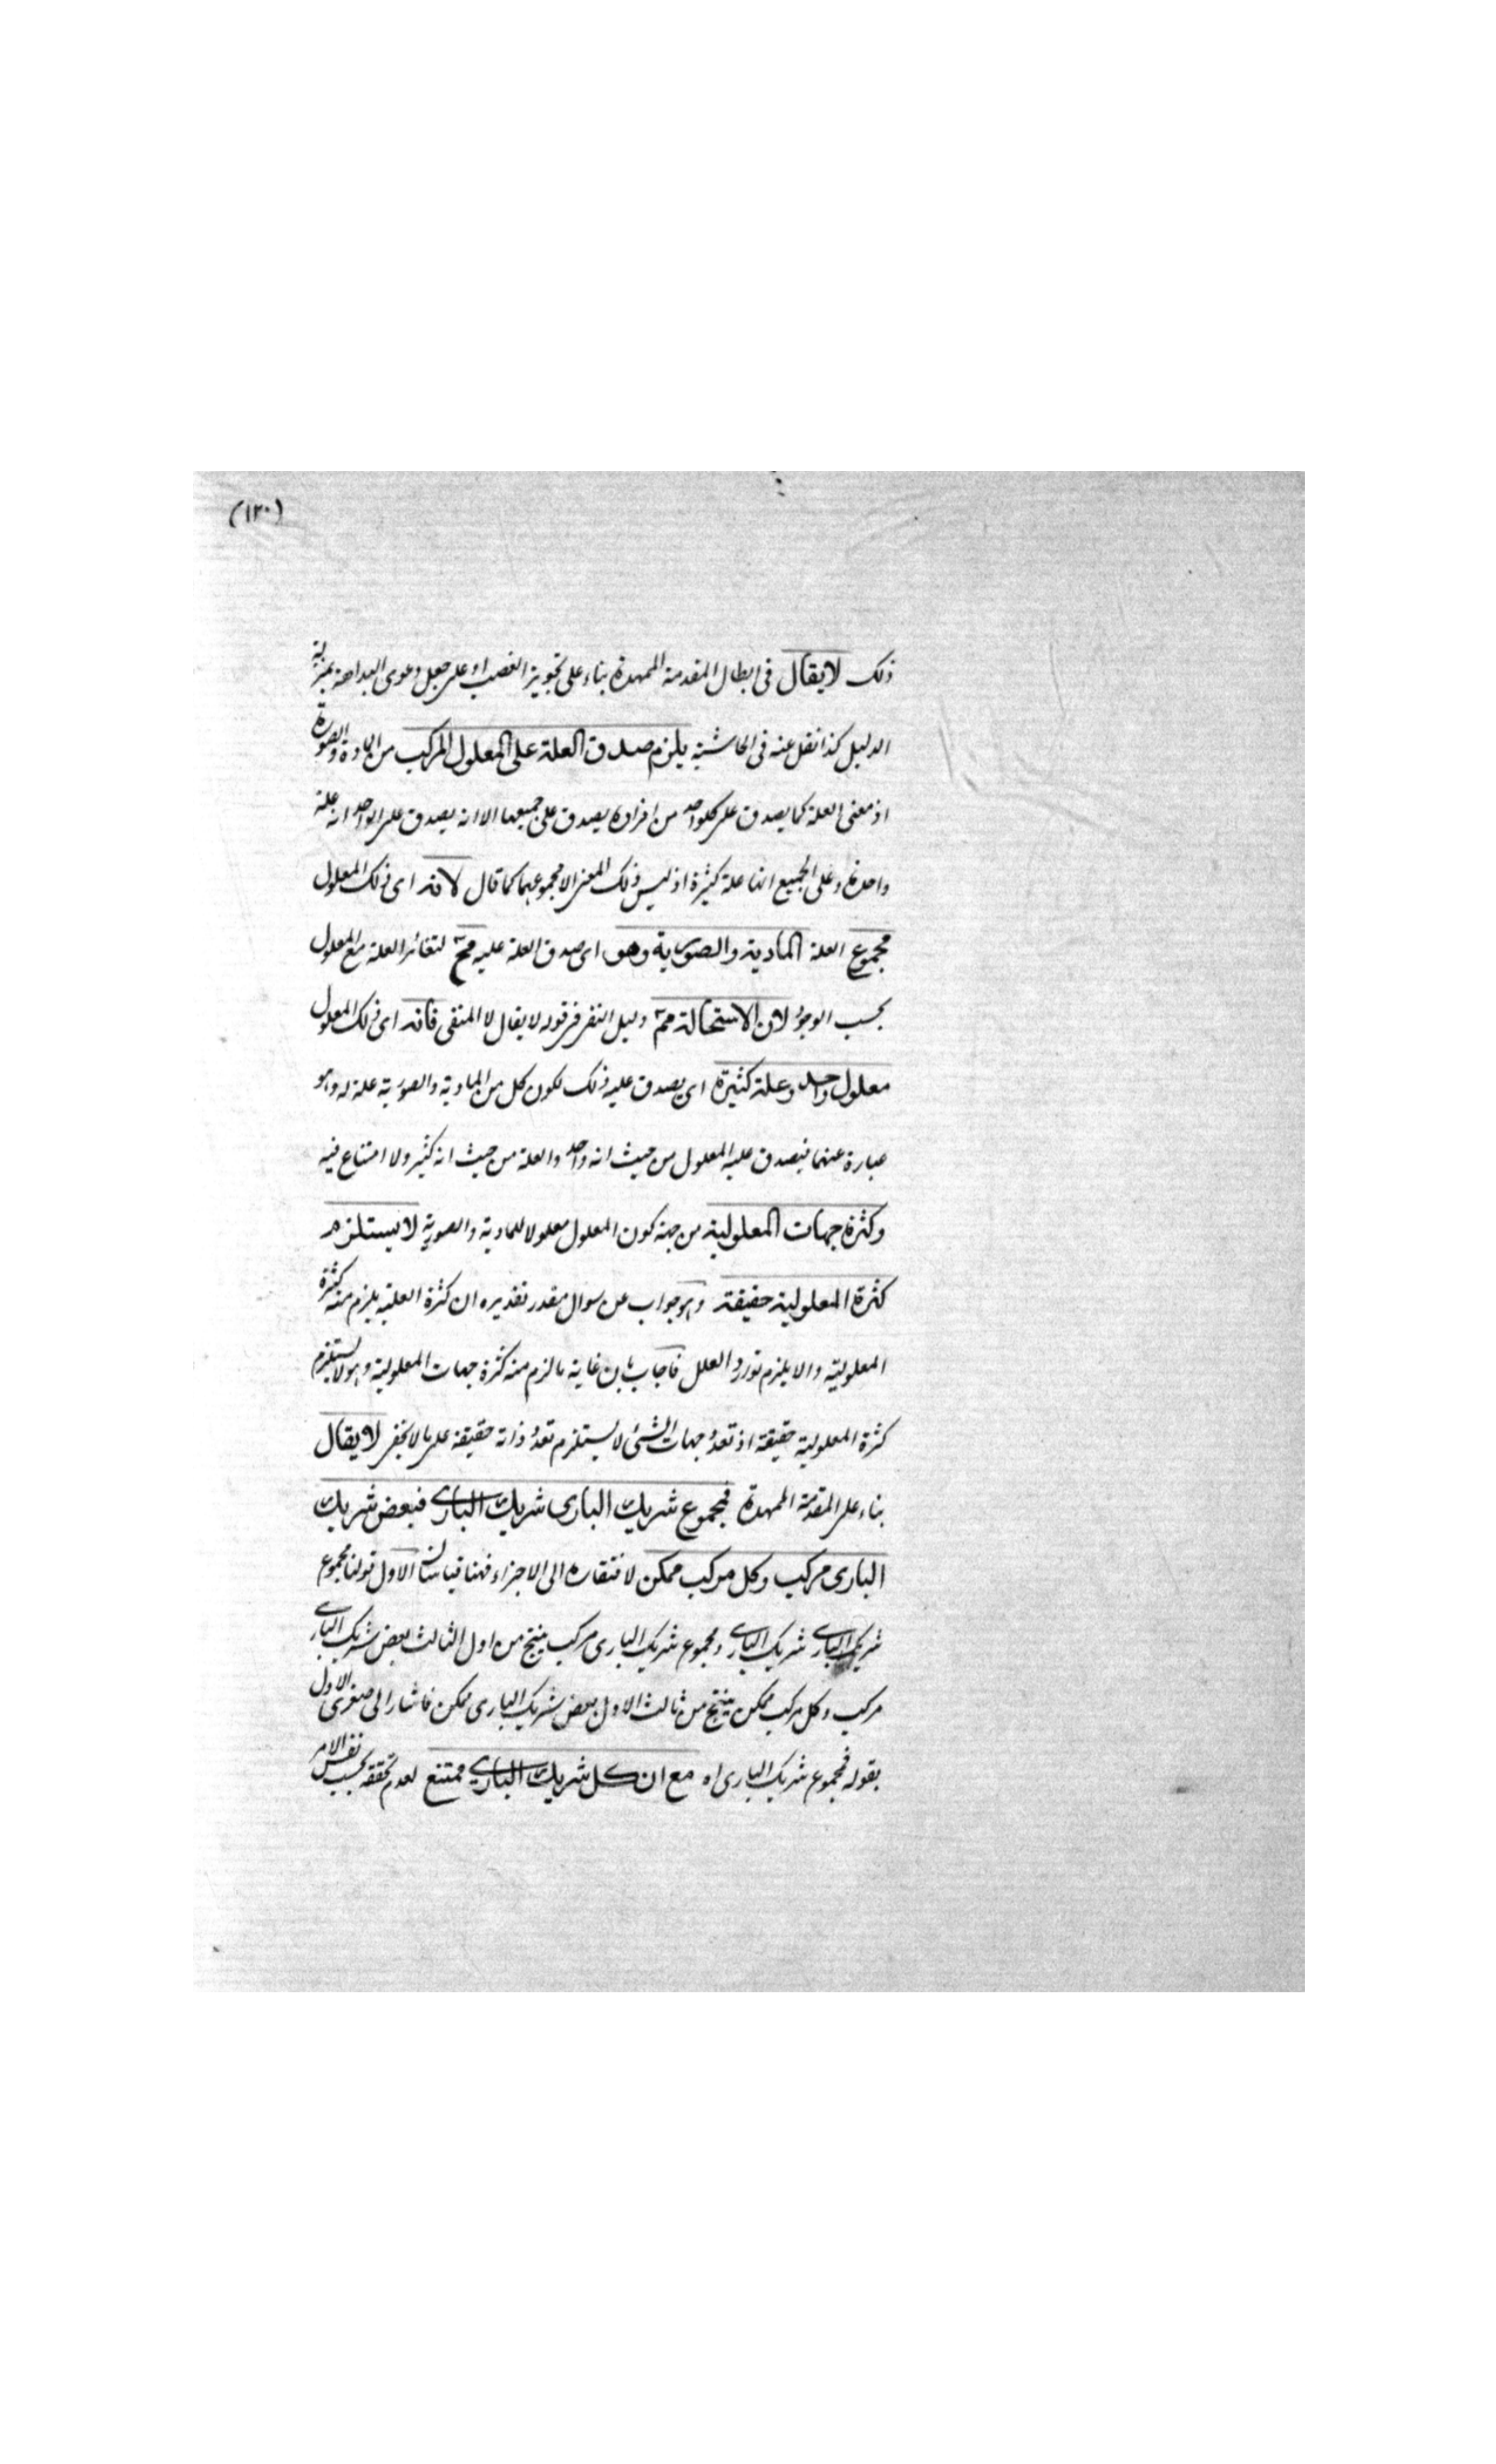 (١٢٠)
ذلك لا يقال فى ابطال المقدمة الممهدة بناء على تجويز الغصب او على جعل دعوى البداهة بمنزلة
الدليل كذا نقل عنه فى الحاشية يلزم صدق العلة على المعلول المركب من المادة والصورة
اذ معنى العلة كما يصدق على كلواحد من افرادها يصدق على جميعها الا انه يصدق على الواحد انه علة
واحدة وعلى الجميع انها علة كثيرة اذ ليس ذلك المعنى الا مجموعهما كما قال لانه اى ذلك المعلول
مجموع العلة المادية والصورية وهو اى صدق العلة عليه مح لتغائر العلة مع المعلول
بحسب الوجود لان الاستحالة مم دليل النفى فى قوله لا يقال لا المنفى فانه اى ذلك المعلول
معلول واحد وعلة كثيرة اى يصدق عليه ذلك لكون كل من المادية والصورية علة له وهو
عبارة عنهما فيصدق عليه المعلول من حيث انه واحد والعلة من حيث انه كثير ولا امتناع فيه
وكثرة جهات المعلولية من جهة كون المعلول معلولا للمادية والصورية لا يستلزم
كثرة المعلولية حقيقة وهو جواب عن سوال مقدر تقديره ان كثرة العلية يلزم منه كثرة
المعلولية والا يلزم توارد العلل فاجاب بان غاية ما لزم منه كثرة جهات المعلولية وهو لا يستلزم
كثرة المعلولية حقيقة اذ تعدد جهات الشئ لا يستلزم تعدد ذاته حقيقة على ما لا يخفى لا يقال
بناء على المقدمة الممهدة فمجموع شريك البارى شريك البارى فبعض شريك
البارى مركب وكل مركب ممكن لافتقاره الى الاجزاء فهنا قياسان الاول قولنا مجموع
شريك البارى شريك البارى ومجموع شريك البارى مركب ينتج من اول الثالث بعض شريك البارى
مركب وكل مركب ممكن ينتج من ثالث الاول بعض شريك البارى ممكن فاشار الى صغرى الاول
بقوله فمجموع شريك البارى اه مع ان كل شريك البارى ممتنع لعدم تحققه بحسب نفس الامر